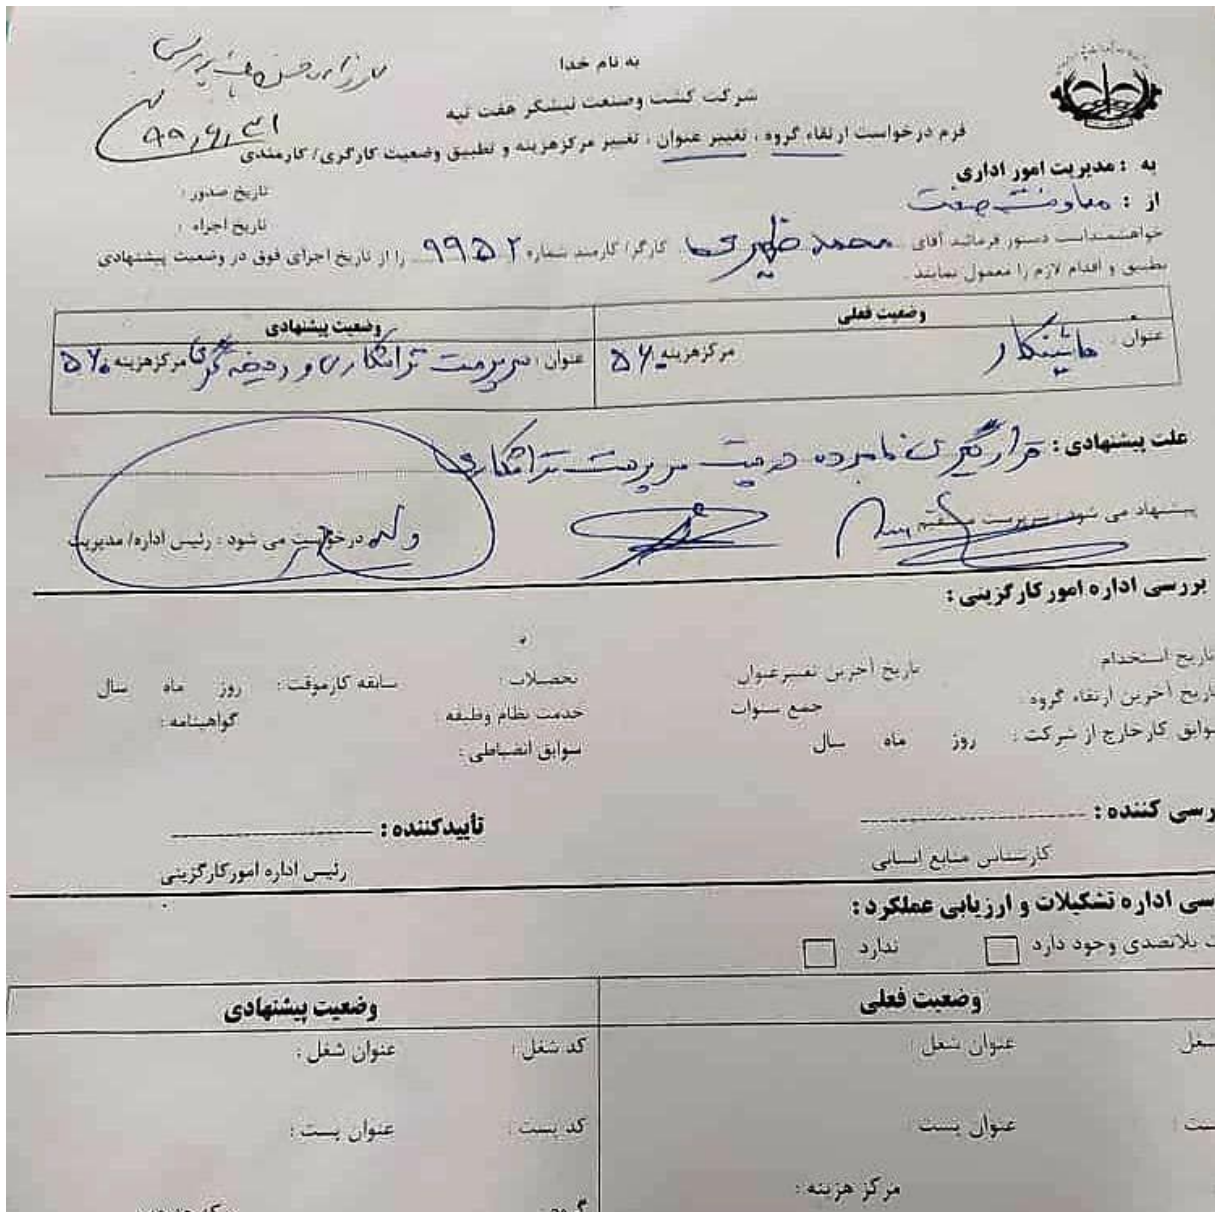 به نام خدا
شرکت کشت وصنعت نیشکر هفت تپه
فرم درخواست ارتقاء گروه ، تغییر عنوان ، تغییر مرکزهزینه و تطبیق وضعیت کارگری/ کارمندی
۹۹٫۶٫۳۱
به : مدیریت امور اداری
تاریخ صدور :
از : معاونت صنعت
تاریخ اجراء :
خواهشمنداست دستور فرمائید آقای محمد کارگر/ کارمند شماره ۹۹۵۲ را از تاریخ اجرای فوق در وضعیت پیشنهادی
تطبیق و اقدام لازم را معمول نمایند .
وضعیت فعلی
وضعیت پیشنهادی
عنوان : ماشینکار مرکزهزینه ۵۶۰
عنوان : سرپرست تراشکاری و مرکزهزینه ۵۶۰
علت پیشنهادی : قرارگیری نامبرده در پست سرپرست تراشکاری
پیشنهاد می شود : سرپرست مستقیم
درخواست می شود : رئیس اداره/ مدیریت
بررسی اداره امورکارگزینی :
تاریخ استخدام
تاریخ آخرین تغییرعنوان
تحصیلات :
سابقه کارموقت : روز ماه سال
تاریخ آخرین ارتقاء گروه :
جمع سنوات
خدمت نظام وظیفه :
گواهینامه :
سوابق کارخارج از شرکت : روز ماه سال
سوابق انضباطی :
رسی کننده :
تأییدکننده :
کارشناس منابع انسانی
رئیس اداره امورکارگزینی
سی اداره تشکیلات و ارزیابی عملکرد :
ت بلاتصدی وجود دارد ندارد
وضعیت فعلی
وضعیت پیشنهادی
شغل
عنوان شغل :
کد شغل :
عنوان شغل :
ست :
عنوان پست :
کد پست :
عنوان پست :
مرکز هزینه :
گروه